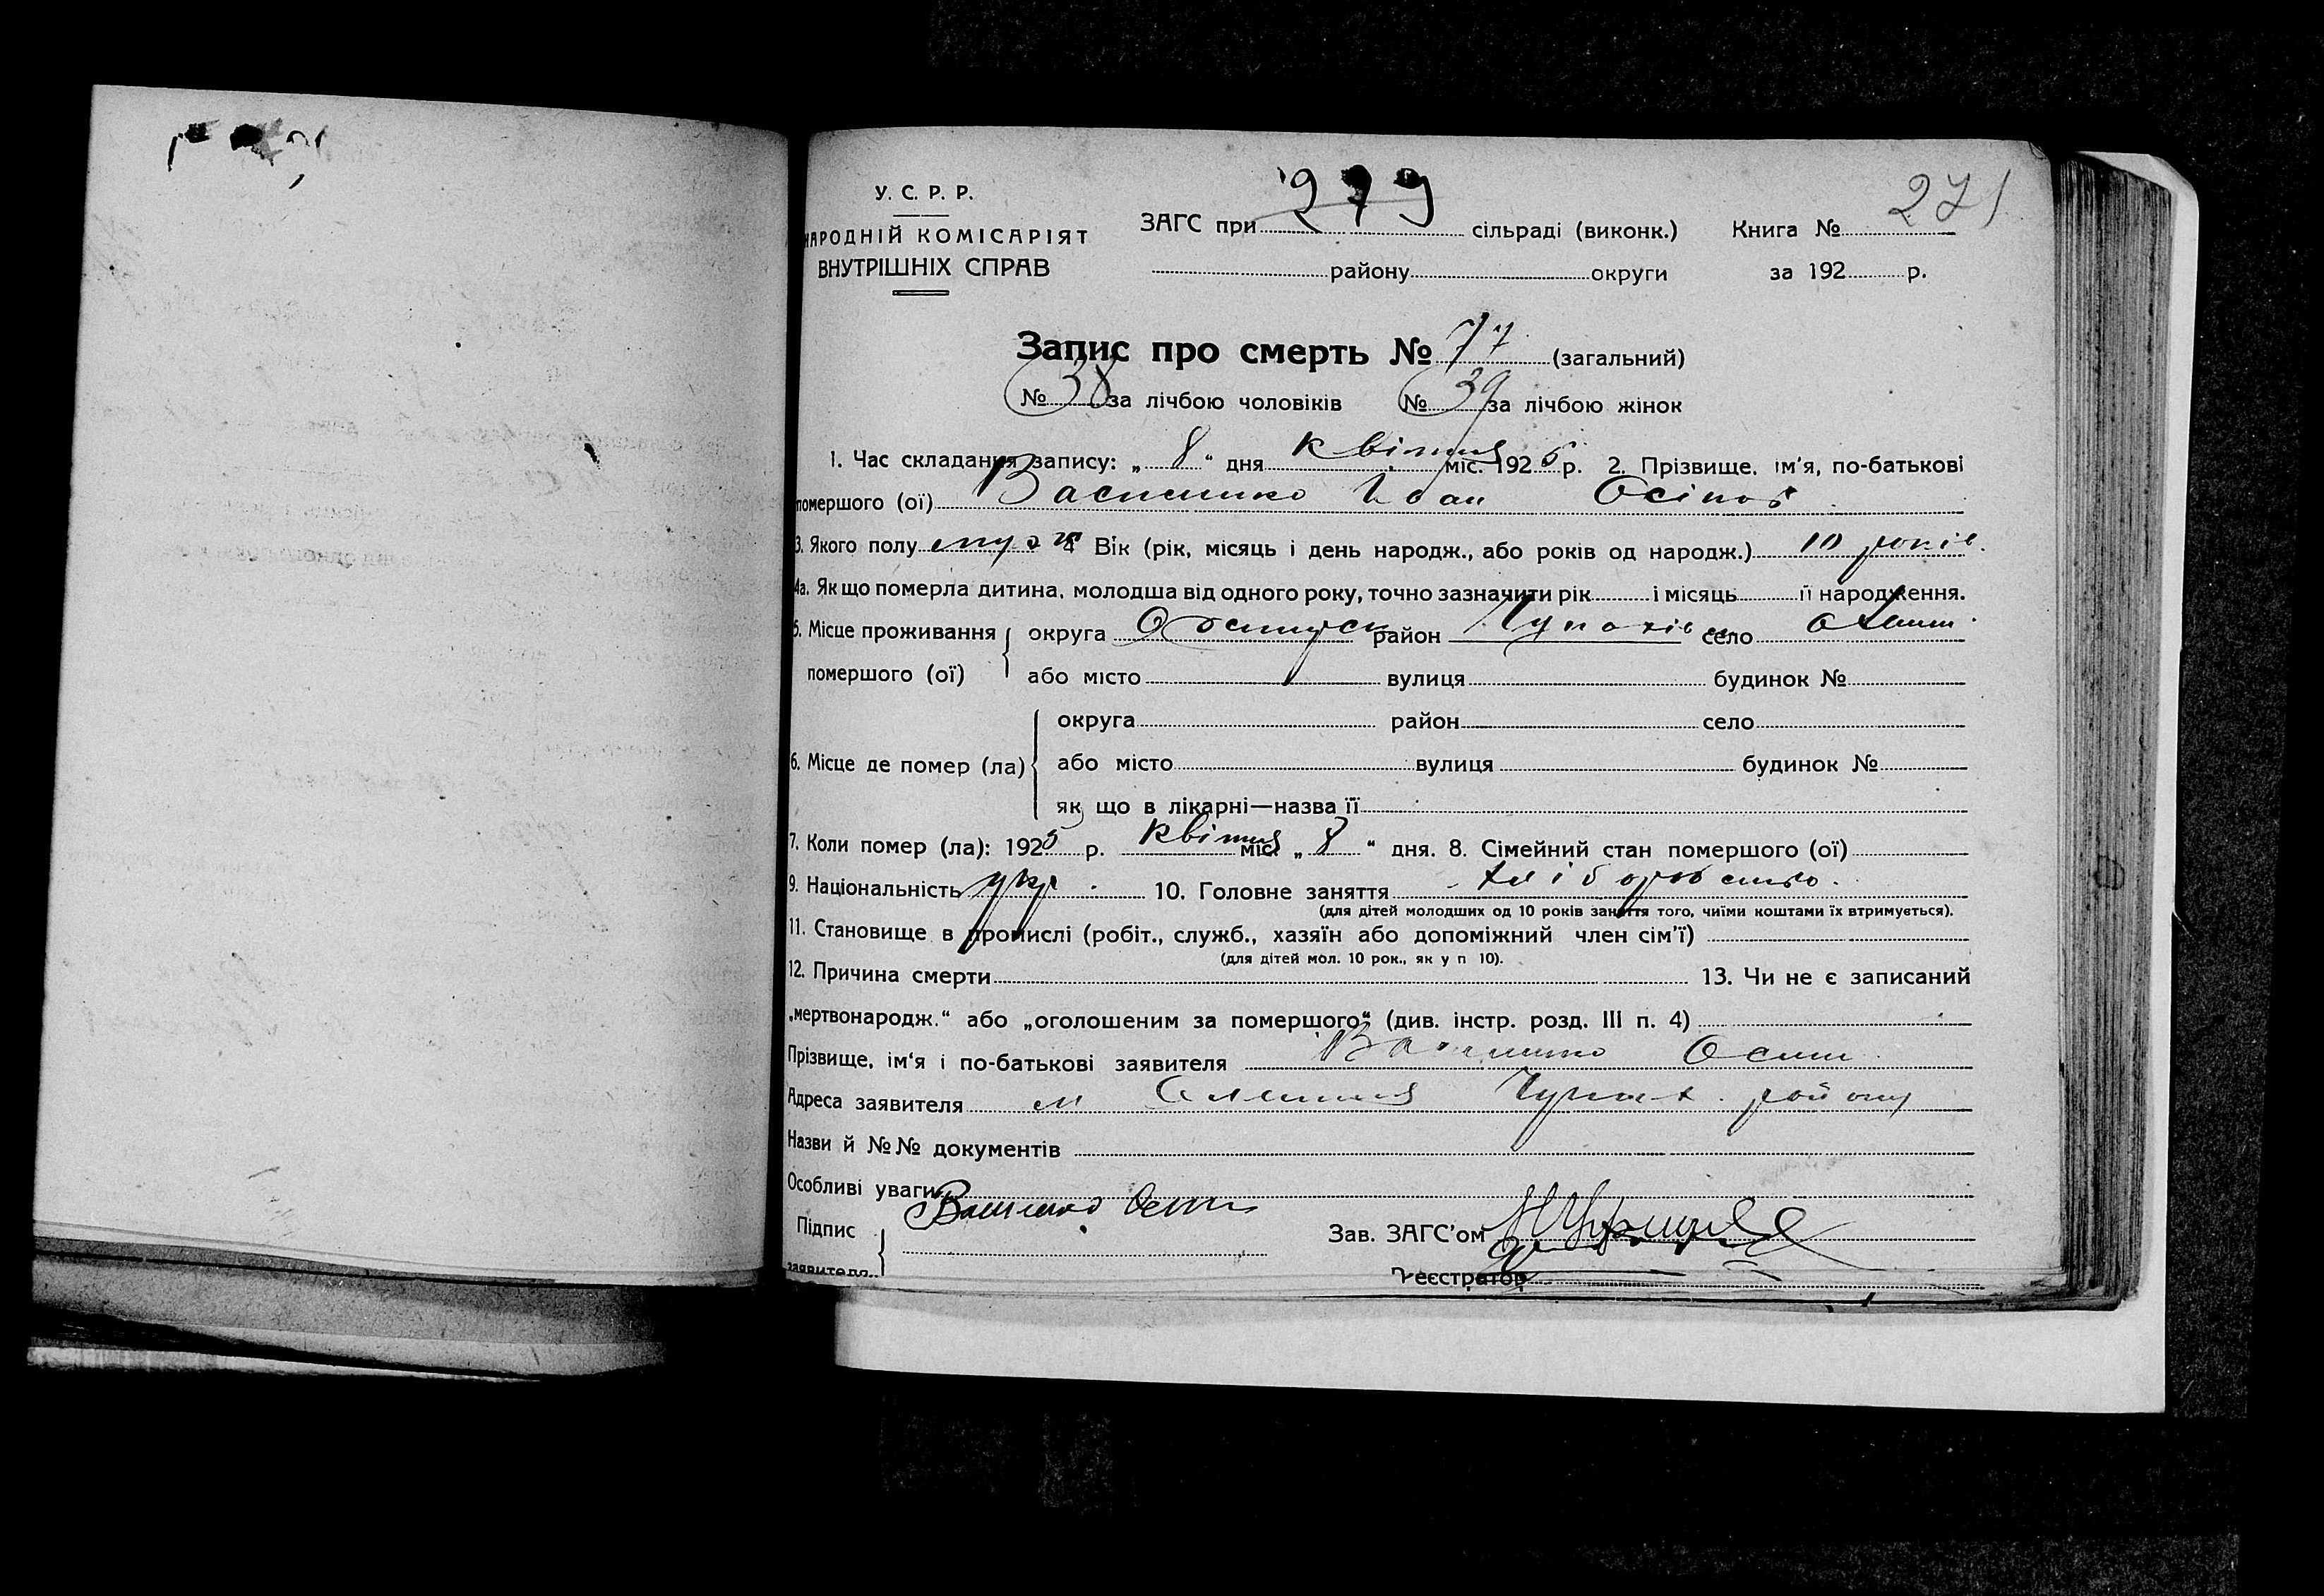 У. С. Р. Р.
НАРОДНІЙ КОМІСАРІЯТ
ВНУТРІШНІХ СПРАВ
ЗАГС при 279 сільраді (виконк.) Книга № 271
району округи за 192 р.
Запис про смерть № 77 (загальний)
№ 38 за лічбою чоловіків № 39 за лічбою жінок
1. Час складання запису: „ 8 “ дня квітня міс. 1925 р. 2. Прізвище, ім'я, по-батькові
помершого (ої) Іван Осіпов
3. Якого полу муж 4 Вік (рік, місяць і день народж., або років од народж.) 10 років.
4а. Як що померла дитина, молодша від одного року, точно зазначити рік і місяць її народження.
5. Місце проживання округа район село
помершого (ої) або місто вулиця будинок №
округа район село
6. Місце де помер (ла) або місто вулиця будинок №
як що в лікарні—назва її
7. Коли помер (ла): 1925 р. квітня міс. „ 8 “ дня. 8. Сімейний стан помершого (ої)
9. Національність укр. 10. Головне заняття хліборобство.
(для дітей молодших од 10 років заняття того, чиїми коштами їх втримується).
11. Становище в промислі (робіт., служб., хазяїн або допоміжний член сім'ї)
(для дітей мол. 10 рок., як у п 10).
12. Причина смерти 13. Чи не є записаний
„мертвонародж.“ або „оголошеним за помершого“ (див. інстр. розд. III п. 4)
Прізвище, ім'я і по-батькові заявителя Осип
Адреса заявителя м району
Назви й №№ документів
Особливі уваги
Підпис Зав. ЗАГС'ом
заявителя
Реєстратор